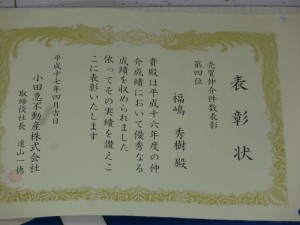 表彰状
売買仲介件数表彰
第四位
福嶋 秀樹 殿
貴殿は平成十六年度の仲
介成績において優秀なる
成績を収められました
依ってその実績を讃えこ
こに表彰いたします
平成十七年四月吉日
小田急不動産株式会社
取締役社長 遠山一徳